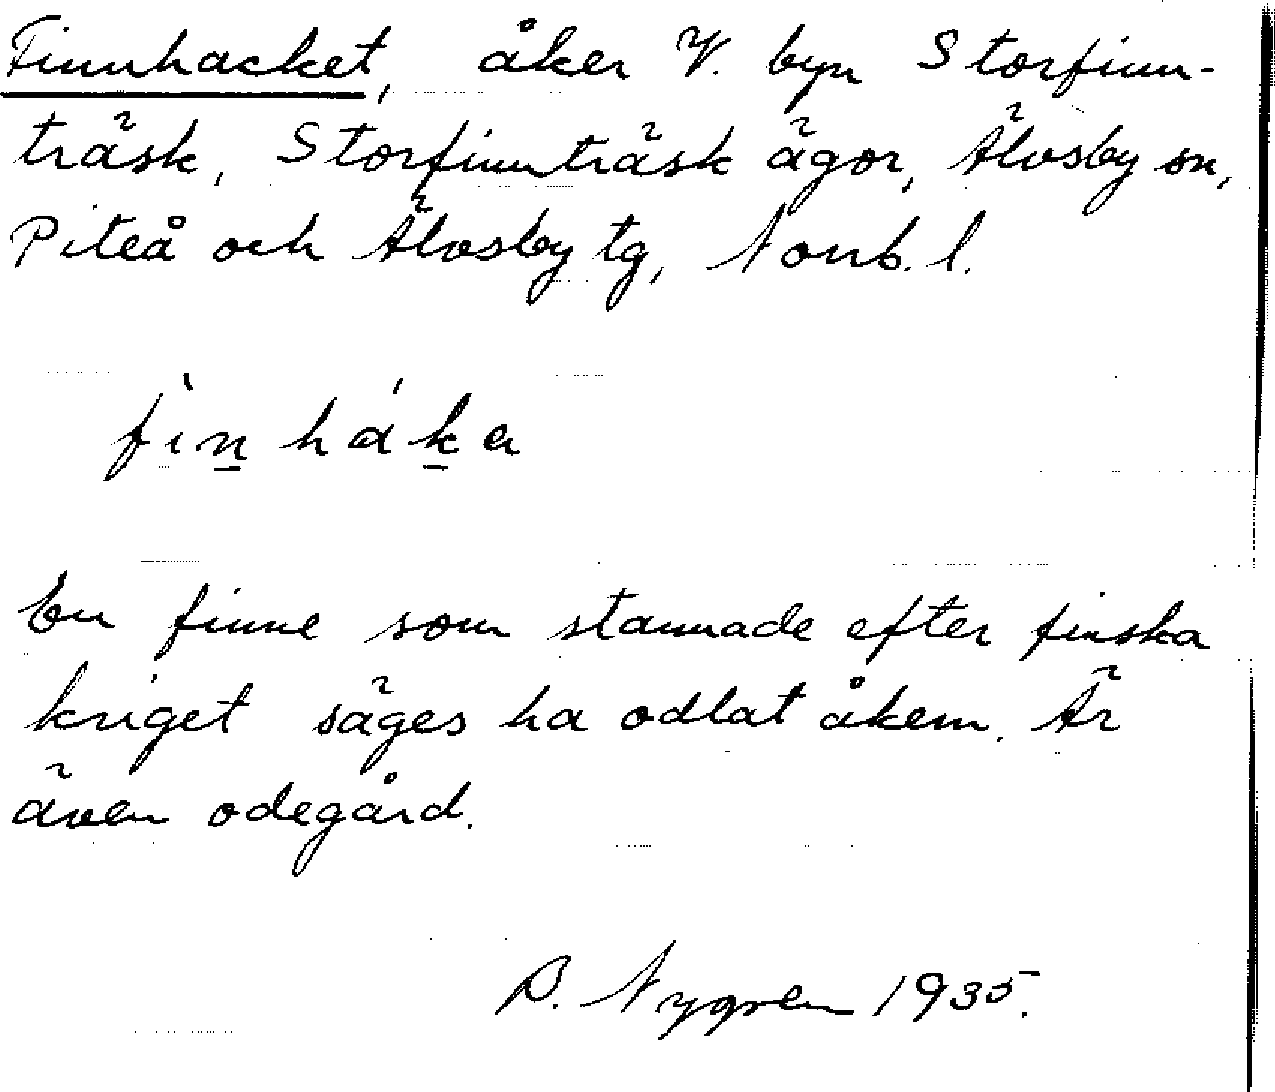 Finnhacket, åker V. byn Storfinn-
träsk, Storfinnträsk ägor, Älvsby sn,
Piteå och Älvsby tg, Norrb. l.
fìn̲ hák̲a
En finne som stannade efter finska
kriget säges ha odlat åkern. Är
även ödegård.
B. Nygren 1935.